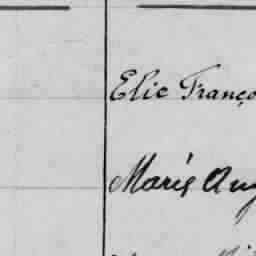 Elie Franço
Marie Aug